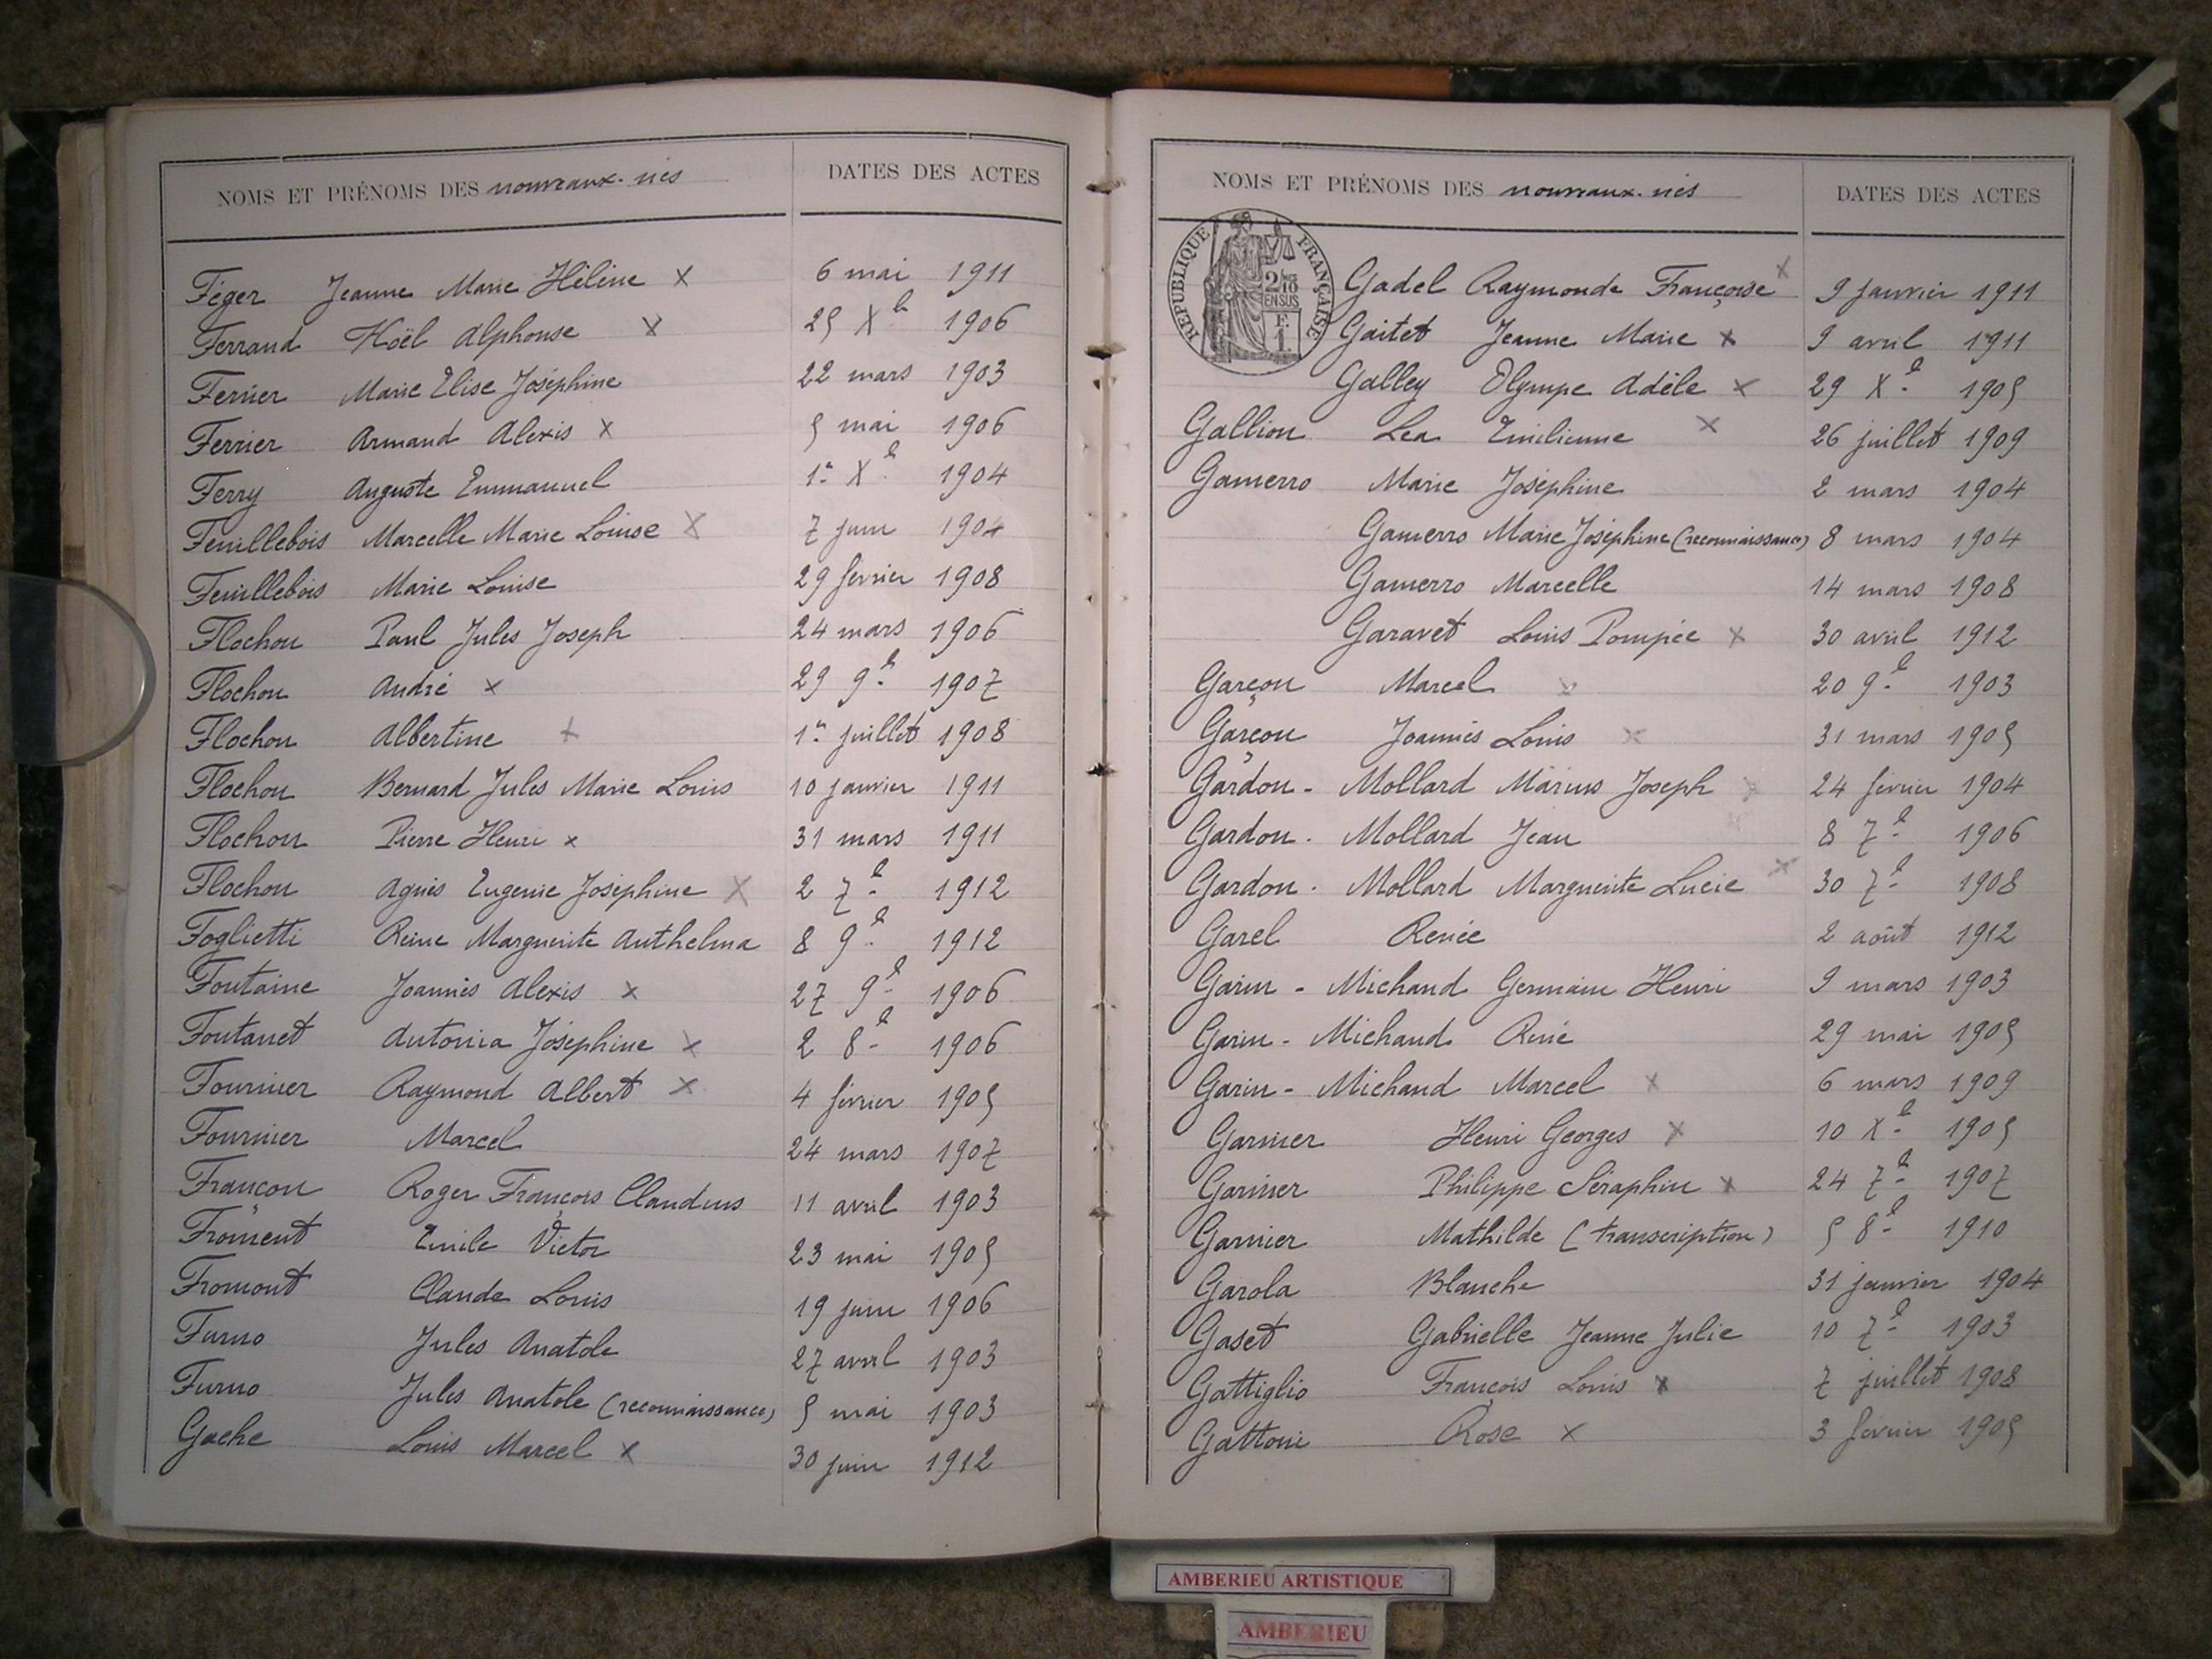 NOMS ET PRÉNOMS DES nouveaux-nés DATES DES ACTES
Féger Jeanne Marie Hélène X 6 mai 1911
Ferrand Noël Alphonse X 25 Xb 1906
Ferrier Marie Elise Joséphine 22 mars 1903
Ferrier Armand Alexis X 5 mai 1906
Ferry Auguste Emmanuel 1er Xb 1904
Feuillebois Marcelle Marie Louise X 7 juin 1904
Feuillebois Marie Louise 29 février 1908
Flochon Paul Jules Joseph 24 mars 1906
Flochon André X 29 9b 1907
Flochon Albertine X 1er juillet 1908
Flochon Bernard Jules Marie Louis 10 janvier 1911
Flochon Pierre Henri X 31 mars 1911
Flochon Agnès Eugenie Joséphine X 2 7b 1912
Foglietti Reine Marguerite Anthelma 8 9b 1912
Fontaine Joannès Alexis X 27 9b 1906
Fontanet Antonia Joséphine X 2 8b 1906
Fournier Raymond Albert X 4 février 1905
Fournier Marcel 24 mars 1907
Françon Roger François Claudius 11 avril 1903
Froment Emile Victor 23 mai 1905
Fromont Claude Louis 19 juin 1906
Furno Jules Anatole 27 avril 1903
Furno Jules Anatole (reconnaissance) 5 mai 1903
Gache Louis Marcel X 30 juin 1912
NOMS ET PRÉNOMS DES nouveaux-nés DATES DES ACTES
RÉPUBLIQUE FRANÇAISE
2/10 EN SUS
F. 1
Gadel Raymonde Françoise X 9 janvier 1911
Gaitet Jeanne Marie X 9 avril 1911
Galley Olympe Adèle X 29 Xb 1905
Gallion Lea Emilienne X 26 juillet 1909
Gamerro Marie Joséphine 2 mars 1904
Gamerro Marie Joséphine (reconnaissance) 8 mars 1904
Gamerro Marcelle 14 mars 1908
Garavet Louis Pompée X 30 avril 1912
Garçon Marcel X 20 9b 1903
Garçon Joannès Louis X 31 mars 1905
Gardon - Mollard Marius Joseph X 24 février 1904
Gardon - Mollard Jean 8 7b 1906
Gardon - Mollard Marguerite Lucie X 30 7b 1908
Garel Renée 2 août 1912
Garin - Michaud Germain Henri 9 mars 1903
Garin - Michaud René 29 mai 1905
Garin - Michaud Marcel X 6 mars 1909
Garnier Henri Georges X 10 Xb 1905
Garnier Philippe Séraphin X 24 7b 1907
Garnier Mathilde (transcription) 5 8b 1910
Garola Blanche 31 janvier 1904
Gaset Gabrielle Jeanne Julie 10 7b 1903
Gattiglio François Louis X 7 juillet 1908
Gattoni Rose X 3 février 1905
AMBERIEU ARTISTIQUE
AMBERIEU